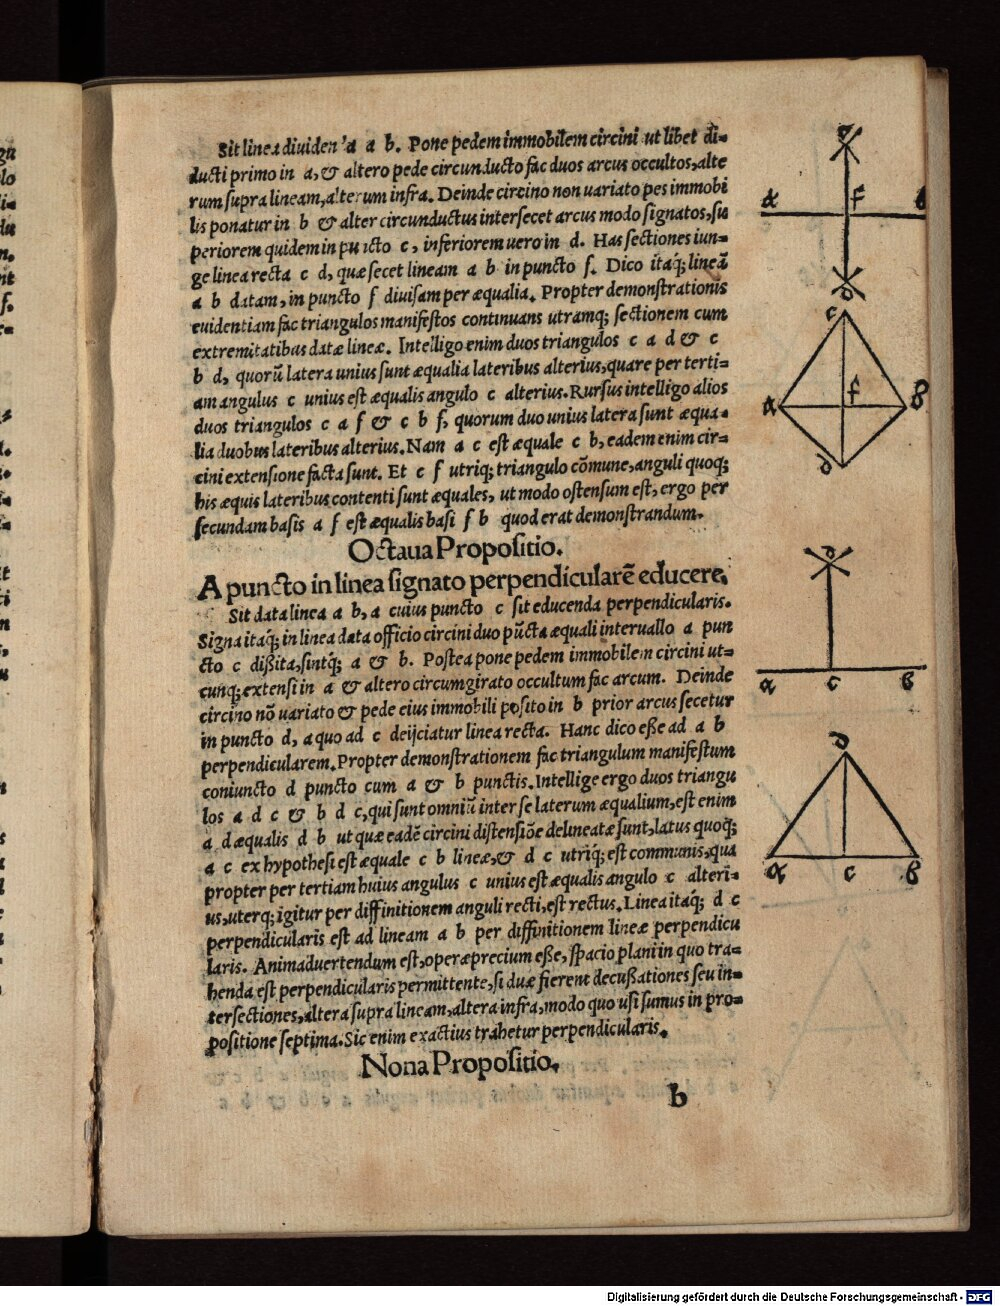 Sit linea diuiden'a a b. Pone pedem immobilem circini ut libet di-
ducti primo in a, & altero pede circunducto fac duos arcus occultos, alte
rum supra lineam, alterum infra. Deinde circino non uariato pes immobi
lis ponatur in b & alter circunductus intersecet arcus modo signatos, su
periorem quidem in pu icto c, inferiorem uero in d. Has sectiones iun-
ge linea recta c d, quæ secet lineam a b in puncto f. Dico itaq; lineã
a b datam, in puncto f diuisam per æqualia. Propter demonstrationis
euidentiam fac triangulos manifestos continuans utramq; sectionem cum
extremitatibus datæ lineæ. Intelligo enim duos triangulos c a d & c
b d, quorũ latera unius sunt æqualia lateribus alterius, quare per terti-
am angulus c unius est æqualis angulo c alterius. Rursus intelligo alios
duos triangulos c a f & c b f, quorum duo unius latera sunt æqua-
lia duobus lateribus alterius. Nam a c est æquale c b, eadem enim cir-
cini extensione facta sunt. Et c f utriq; triangulo cõmune, anguli quoq;
his æquis lateribus contenti sunt æquales, ut modo ostensum est, ergo per
secundam basis a f est æqualis basi f b quod erat demonstrandum.
Octaua Propositio.
A puncto in linea signato perpendicularẽ educere.
Sit data linea a b, a cuius puncto c sit educenda perpendicularis.
Signa itaq; in linea data officio circini duo pũcta æquali interuallo a pun
cto c dißita, sintq́; a & b. Postea pone pedem immobilem circini ut-
cunq; extensi in a & altero circumgirato occultum fac arcum. Deinde
circino nõ uariato & pede eius immobili posito in b prior arcus secetur
in puncto d, a quo ad c deijciatur linea recta. Hanc dico eße ad a b
perpendicularem. Propter demonstrationem fac triangulum manifestum
coniuncto d puncto cum a & b punctis. Intellige ergo duos triangu
los a d c & b d c, qui sunt omniũ inter se laterum æqualium, est enim
a d æqualis d b ut quæ eadẽ circini distensiõe delineatæ sunt, latus quoq;
a c ex hypothesi est æquale c b lineæ, & d c utriq́; est communis, qua
propter per tertiam huius angulus c unius est æqualis angulo c alteri-
us, uterq; igitur per diffinitionem anguli recti, est rectus. Linea itaq́; d c
perpendicularis est ad lineam a b per diffinitionem lineæ perpendicu
laris. Animaduertendum est, operæprecium eße, spacio plani in quo tra-
henda est perpendicularis permittente, si duæ fierent decußationes seu in-
tersectiones, altera supra lineam, altera infra, modo quo usi sumus in pro-
positione septima. Sic enim exactius trahetur perpendicularis.
Nona Propositio.
b
c
a f b
d
c
a f b
d
d
a c b
d
a c b
Digitalisierung gefördert durch die Deutsche Forschungsgemeinschaft - DFG